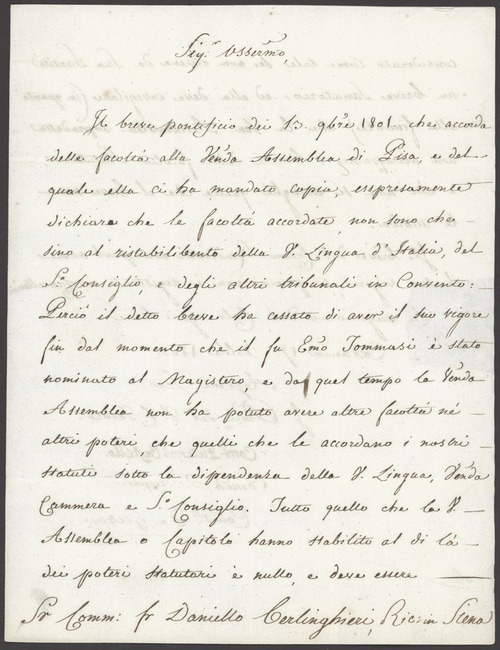 Sig.r Ossermo,
Il breve pontificio dei 13. 9bre 1801 che accorda
delle facoltà alla Venda Assemblea di Pisa, e del
quale ella ci ha mandato copia, espresamente
dichiara che le facoltà accordate, non sono che —
sino al ristabilibento della V. Lingua d'Italia, del
S. Consiglio, e degli altri tribunali in Convento:
Perciò il detto breve ha cessato di aver il suo vigore
fin dal momento che il fu Emo Tommasi è stato
nominato al Magistero, e da quel tempo la Venda
Assemblea non ha potuto avere altre facoltà né —
altri poteri che quelli che le accordano i nostri
statuti sotto la dipendenza della V. Lingua, Venda
Cammera e S. Consiglio. Tutto quello che la V. —
Assemblea o Capitolo hanno stabilito al di là
dei poteri statutari è nullo, e deve essere —
Sr Comm: fr Daniello Berlinghieri, Ric: in Siena